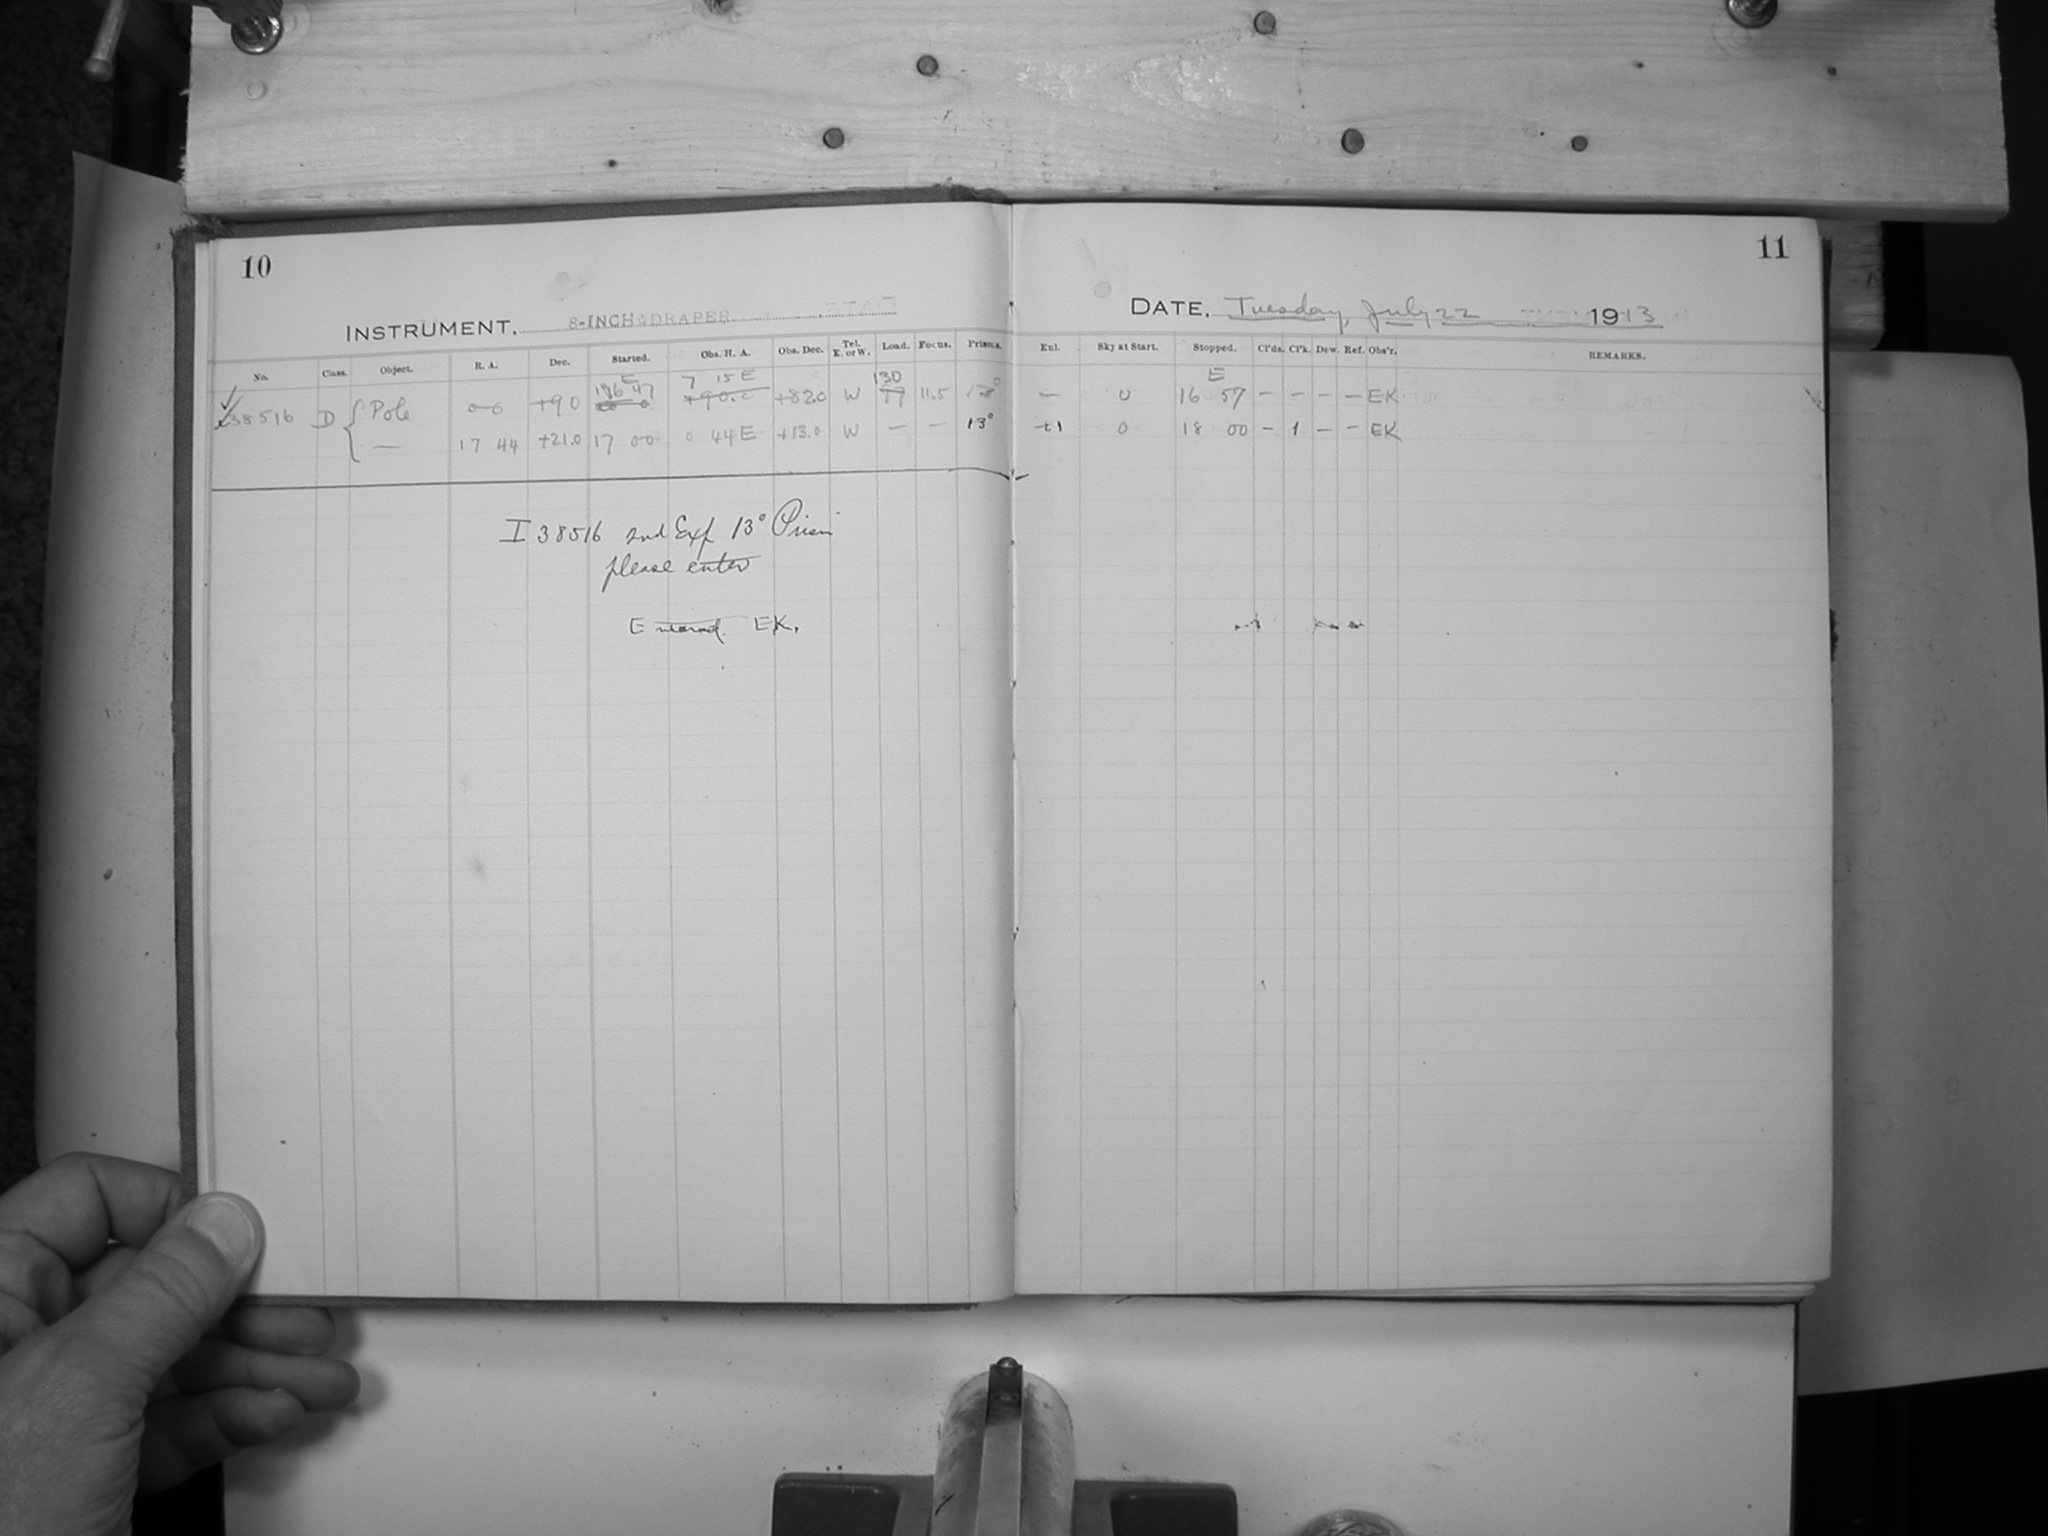 10
INSTRUMENT. 8-INCH DRAPER
No. Class. Object. R. A. Dec. Started. Obs. H. A. Obs. Dec. Tel. E. or W. Load. Focus. Prisms.
E 7 15 E 130
38516 D { Pole 0 0 +90 16 47 +90.0 +82.0 W 11.5
— 17 44 +21.0 17 00 0 44 E +13.0 W — — 13°
I 38516 2nd Exp 13° Prism
please enter
Entered. EK.
11
DATE, Tuesday, July 22 1913
Enl. Sky at Start. Stopped. Cl'ds. Cl'k. Dew. Ref. Obs'r. REMARKS.
E
— 0 16 57 — — — — EK
+1 0 18 00 — 1 — — EK